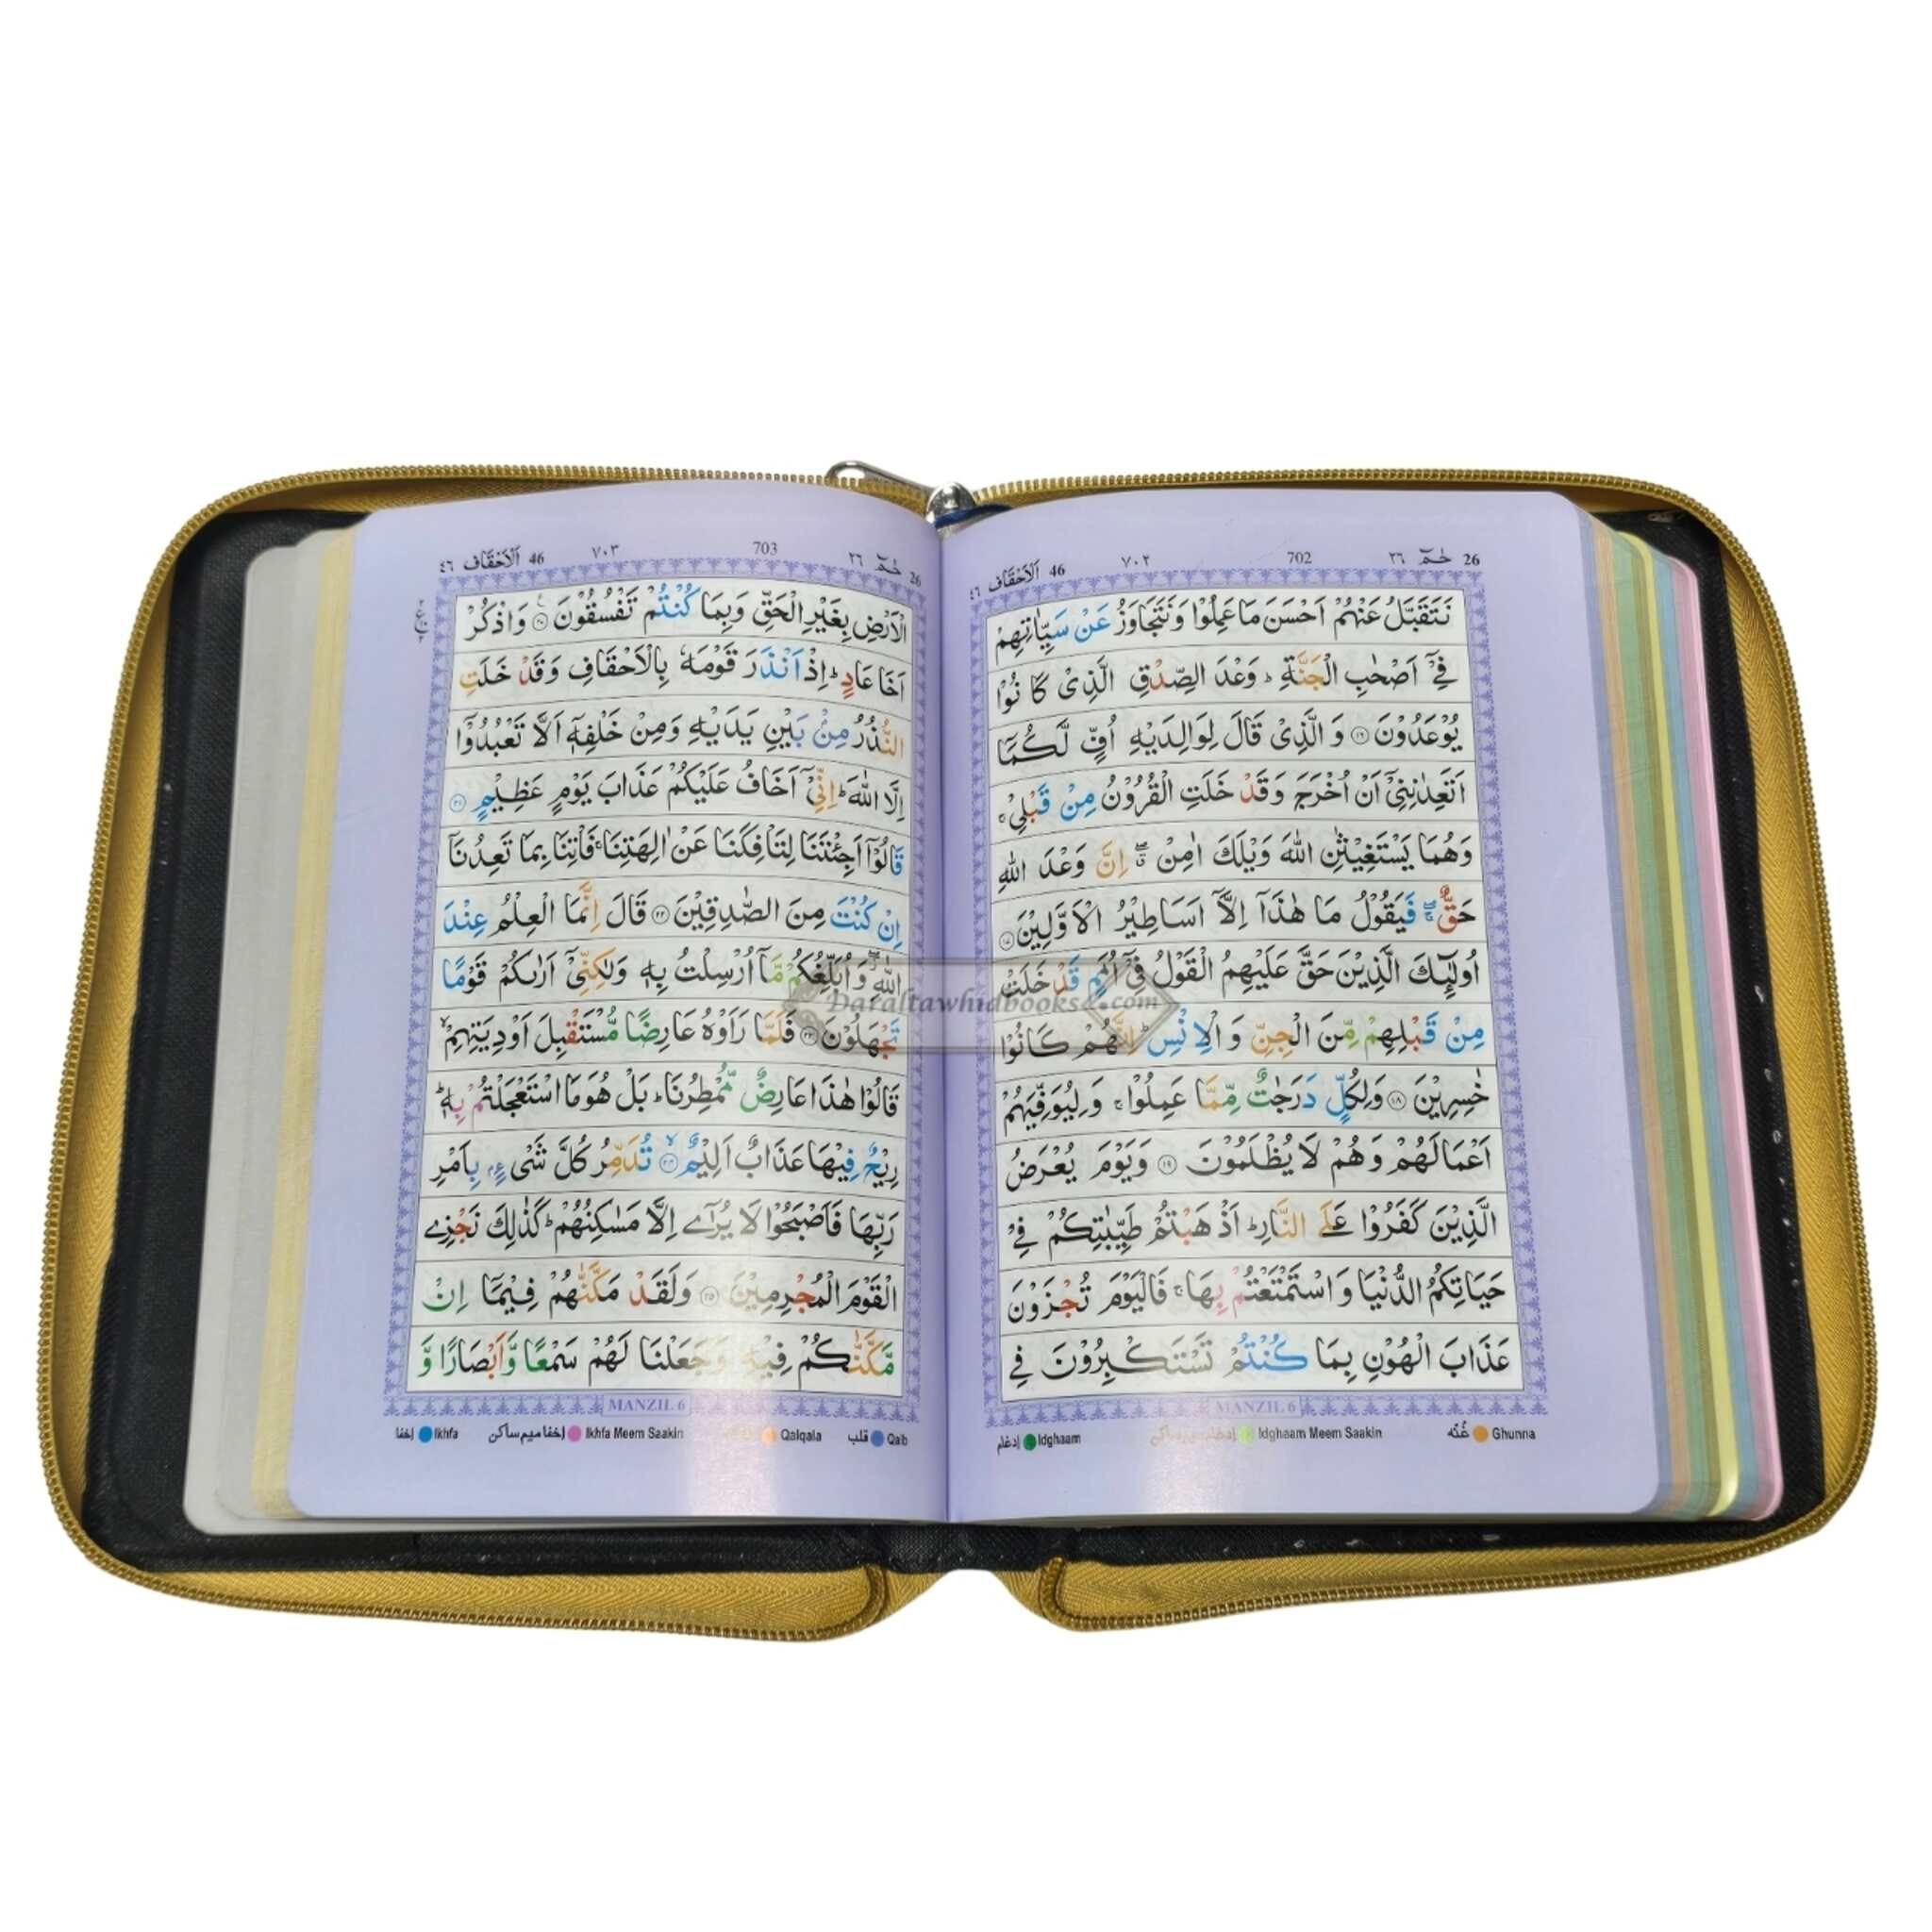 26 حٰمٓ ٢٦ 702 ٧٠٢ 46 اَلْاَحْقَاف ٤٦
نَتَقَبَّلُ عَنْهُمْ اَحْسَنَ مَا عَمِلُوْا وَنَتَجَاوَزُ عَنْ سَيِّاٰتِهِمْ
فِيْٓ اَصْحٰبِ الْجَنَّةِ ؕ وَعْدَ الصِّدْقِ الَّذِىْ كَا نُوْا
يُوْعَدُوْنَ ۝۱۶ وَ الَّذِىْ قَالَ لِوَالِدَيْهِ اُفٍّ لَّكُمَا
اَتَعِدٰنِنِىْٓ اَنْ اُخْرَجَ وَقَدْ خَلَتِ الْقُرُوْنُ مِنْ قَبْلِىْ ۚ
وَهُمَا يَسْتَغِيْثٰنِ اللّٰهَ وَيْلَكَ اٰمِنْ ۖۗ اِنَّ وَعْدَ اللّٰهِ
حَقٌّ ۖۚ فَيَقُوْلُ مَا هٰذَآ اِلَّآ اَسَاطِيْرُ الْاَوَّلِيْنَ ۝۱۷
اُولٰٓئِكَ الَّذِيْنَ حَقَّ عَلَيْهِمُ الْقَوْلُ فِىْٓ اُمَمٍ قَدْ خَلَتْ
مِنْ قَبْلِهِمْ مِّنَ الْجِنِّ وَ الْاِنْسِ ؕ اِنَّهُمْ كَانُوْا
خٰسِرِيْنَ ۝۱۸ وَلِكُلٍّ دَرَجٰتٌ مِّمَّا عَمِلُوْا ۚ وَ لِيُوَفِّيَهُمْ
اَعْمَالَهُمْ وَهُمْ لَا يُظْلَمُوْنَ ۝۱۹ وَيَوْمَ يُعْرَضُ
الَّذِيْنَ كَفَرُوْا عَلَى النَّارِ ؕ اَذْهَبْتُمْ طَيِّبٰتِكُمْ فِىْ
حَيَاتِكُمُ الدُّنْيَا وَ اسْتَمْتَعْتُمْ بِهَا ۚ فَالْيَوْمَ تُجْزَوْنَ
عَذَابَ الْهُوْنِ بِمَا كُنْتُمْ تَسْتَكْبِرُوْنَ فِى
MANZIL 6
Ghunna غُنّه Idghaam Meem Saakin ادغام میم ساکن Idghaam ادغام
26 حٰمٓ ٢٦ 703 ٧٠٣ 46 اَلْاَحْقَاف ٤٦
الْاَرْضِ بِغَيْرِ الْحَقِّ وَبِمَا كُنْتُمْ تَفْسُقُوْنَ ۝۲۰ وَاذْكُرْ
اَخَا عَادٍ ؕ اِذْ اَنْذَرَ قَوْمَهٗ بِالْاَحْقَافِ وَقَدْ خَلَتِ
النُّذُرُ مِنْۢ بَيْنِ يَدَيْهِ وَمِنْ خَلْفِهٖٓ اَلَّا تَعْبُدُوْٓا
اِلَّا اللّٰهَ ؕ اِنِّىْٓ اَخَافُ عَلَيْكُمْ عَذَابَ يَوْمٍ عَظِيْمٍ ۝۲۱
قَالُوْٓا اَجِئْتَنَا لِتَاْفِكَنَا عَنْ اٰلِهَتِنَا ۚ فَاْتِنَا بِمَا تَعِدُنَآ
اِنْ كُنْتَ مِنَ الصّٰدِقِيْنَ ۝۲۲ قَالَ اِنَّمَا الْعِلْمُ عِنْدَ
اللّٰهِ ۖ وَاُبَلِّغُكُمْ مَّآ اُرْسِلْتُ بِهٖ وَلٰكِنِّىْٓ اَرٰىكُمْ قَوْمًا
تَجْهَلُوْنَ ۝۲۳ فَلَمَّا رَاَوْهُ عَارِضًا مُّسْتَقْبِلَ اَوْدِيَتِهِمْ ۙ
قَالُوْا هٰذَا عَارِضٌ مُّمْطِرُنَا ؕ بَلْ هُوَ مَا اسْتَعْجَلْتُمْ بِهٖ ؕ
رِيْحٌ فِيْهَا عَذَابٌ اَلِيْمٌ ۝۲۴ ۙ تُدَمِّرُ كُلَّ شَىْءٍۢ بِاَمْرِ
رَبِّهَا فَاَصْبَحُوْا لَا يُرٰٓى اِلَّا مَسٰكِنُهُمْ ؕ كَذٰلِكَ نَجْزِى
الْقَوْمَ الْمُجْرِمِيْنَ ۝۲۵ وَلَقَدْ مَكَّنّٰهُمْ فِيْمَآ اِنْ
مَّكَّنّٰكُمْ فِيْهِ وَجَعَلْنَا لَهُمْ سَمْعًا وَّاَبْصَارًا وَّ
MANZIL 6
Qalb قلب Qalqala Ikhfa Meem Saakin إخفا میم ساکن Ikhfa إخفا
Daraltawhidbooks.com